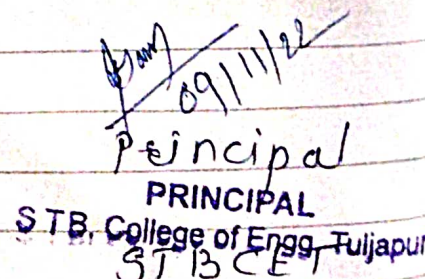 09/11/22
Principal
PRINCIPAL
S T B. College of Engg. Tuljapur
STBCET